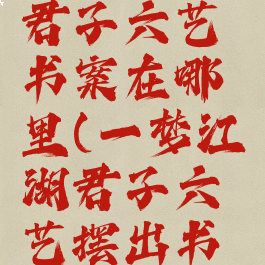 君子六艺
书案在哪
里(一梦江
湖君子六
艺摆出书